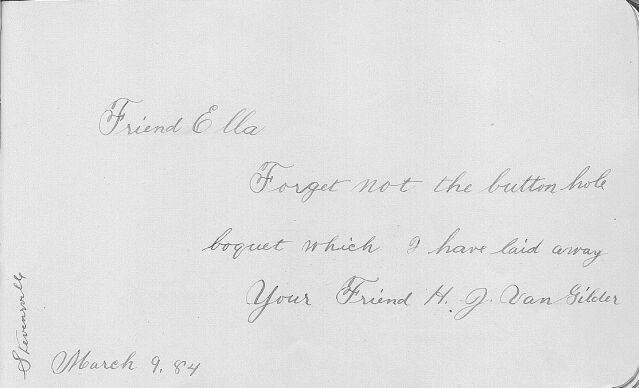 Friend Ella
Forget not the button hole
boquet which I have laid away
Your Friend H. J. Van Gilder
Stevensville
March 9. 84